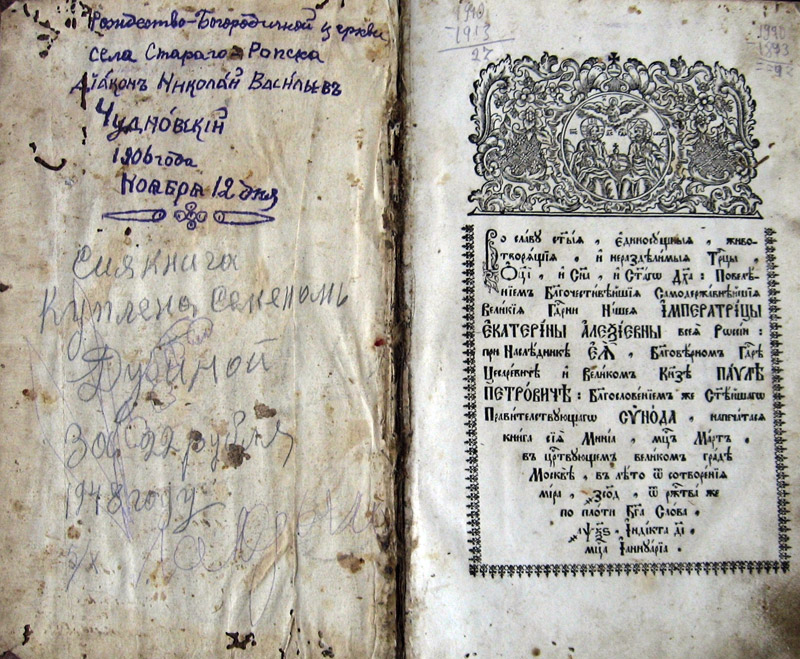 Рождество-Богородичной церкви
села Стараго-Ропска
Діаконъ Николай Васильевъ
Чудновскій
1906 года
Ноабра 12 дня
Сия книга
Куплена Семеномъ
Дубиной
За 22 рубля
1948 году
1913
27
Во славу ст҃ыѧ, єдиносꙋщныѧ, живо-
творѧщїѧ, и нераздѣлимыѧ Трⷪ҇цы,
Ѻ҆ц҃а, и Сн҃а, и Ст҃агѡ Дх҃а: Повелѣ-
нїемъ Благочестивѣйшїѧ Самодержавнѣйшїѧ
Великїѧ Гдⷭ҇рни Нашеѧ ІМПЕРАТРИЦЫ
ЄКАТЕРИНЫ АЛЕѮІЕВНЫ всеѧ Рѡссїи:
при Наслѣдникѣ ЄѦ̀, Благовѣрномъ Гдⷭ҇рѣ
Цесаревичѣ и Великомъ Кнѧзѣ ПАѴЛѢ
ПЕТРОВИЧѢ: Благословенїемъ же Ст҃ѣйшагѡ
Правителствꙋющагѡ СѴНОДА, напечатасѧ
книга сїѧ Минїа, мцⷭ҇ъ Мартъ.
въ црⷭ҇твꙋющемъ великомъ градѣ
Москвѣ, въ лѣто ѿ сотворенїѧ
мїра, ѿ ржⷭ҇тва же
по плоти Бг҃а Слова,
Індїкта
мцⷭ҇а Іаннꙋарїа.